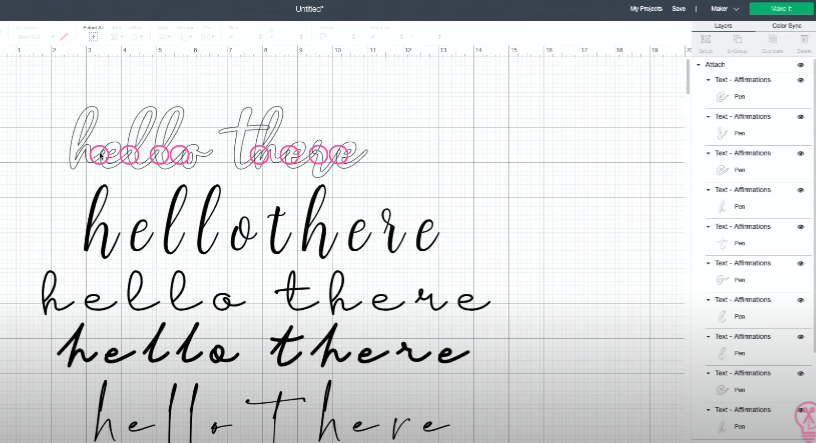 Untitled*
My Projects Save | Maker Make It
Select All
Layers Color Sync
Group UnGroup Duplicate Delete
2 3 4 5 6 7 8 9 10 11 12 13 14 15 16 17 18 19
Attach
Text - Affirmations
Pen
Text - Affirmations
Pen
Text - Affirmations
Pen
Text - Affirmations
Pen
Text - Affirmations
Pen
Text - Affirmations
Pen
Text - Affirmations
Pen
Text - Affirmations
Pen
Text - Affirmations
Pen
Text - Affirmations
Pen
hello there
hellothere
hello there
hello there
hello There